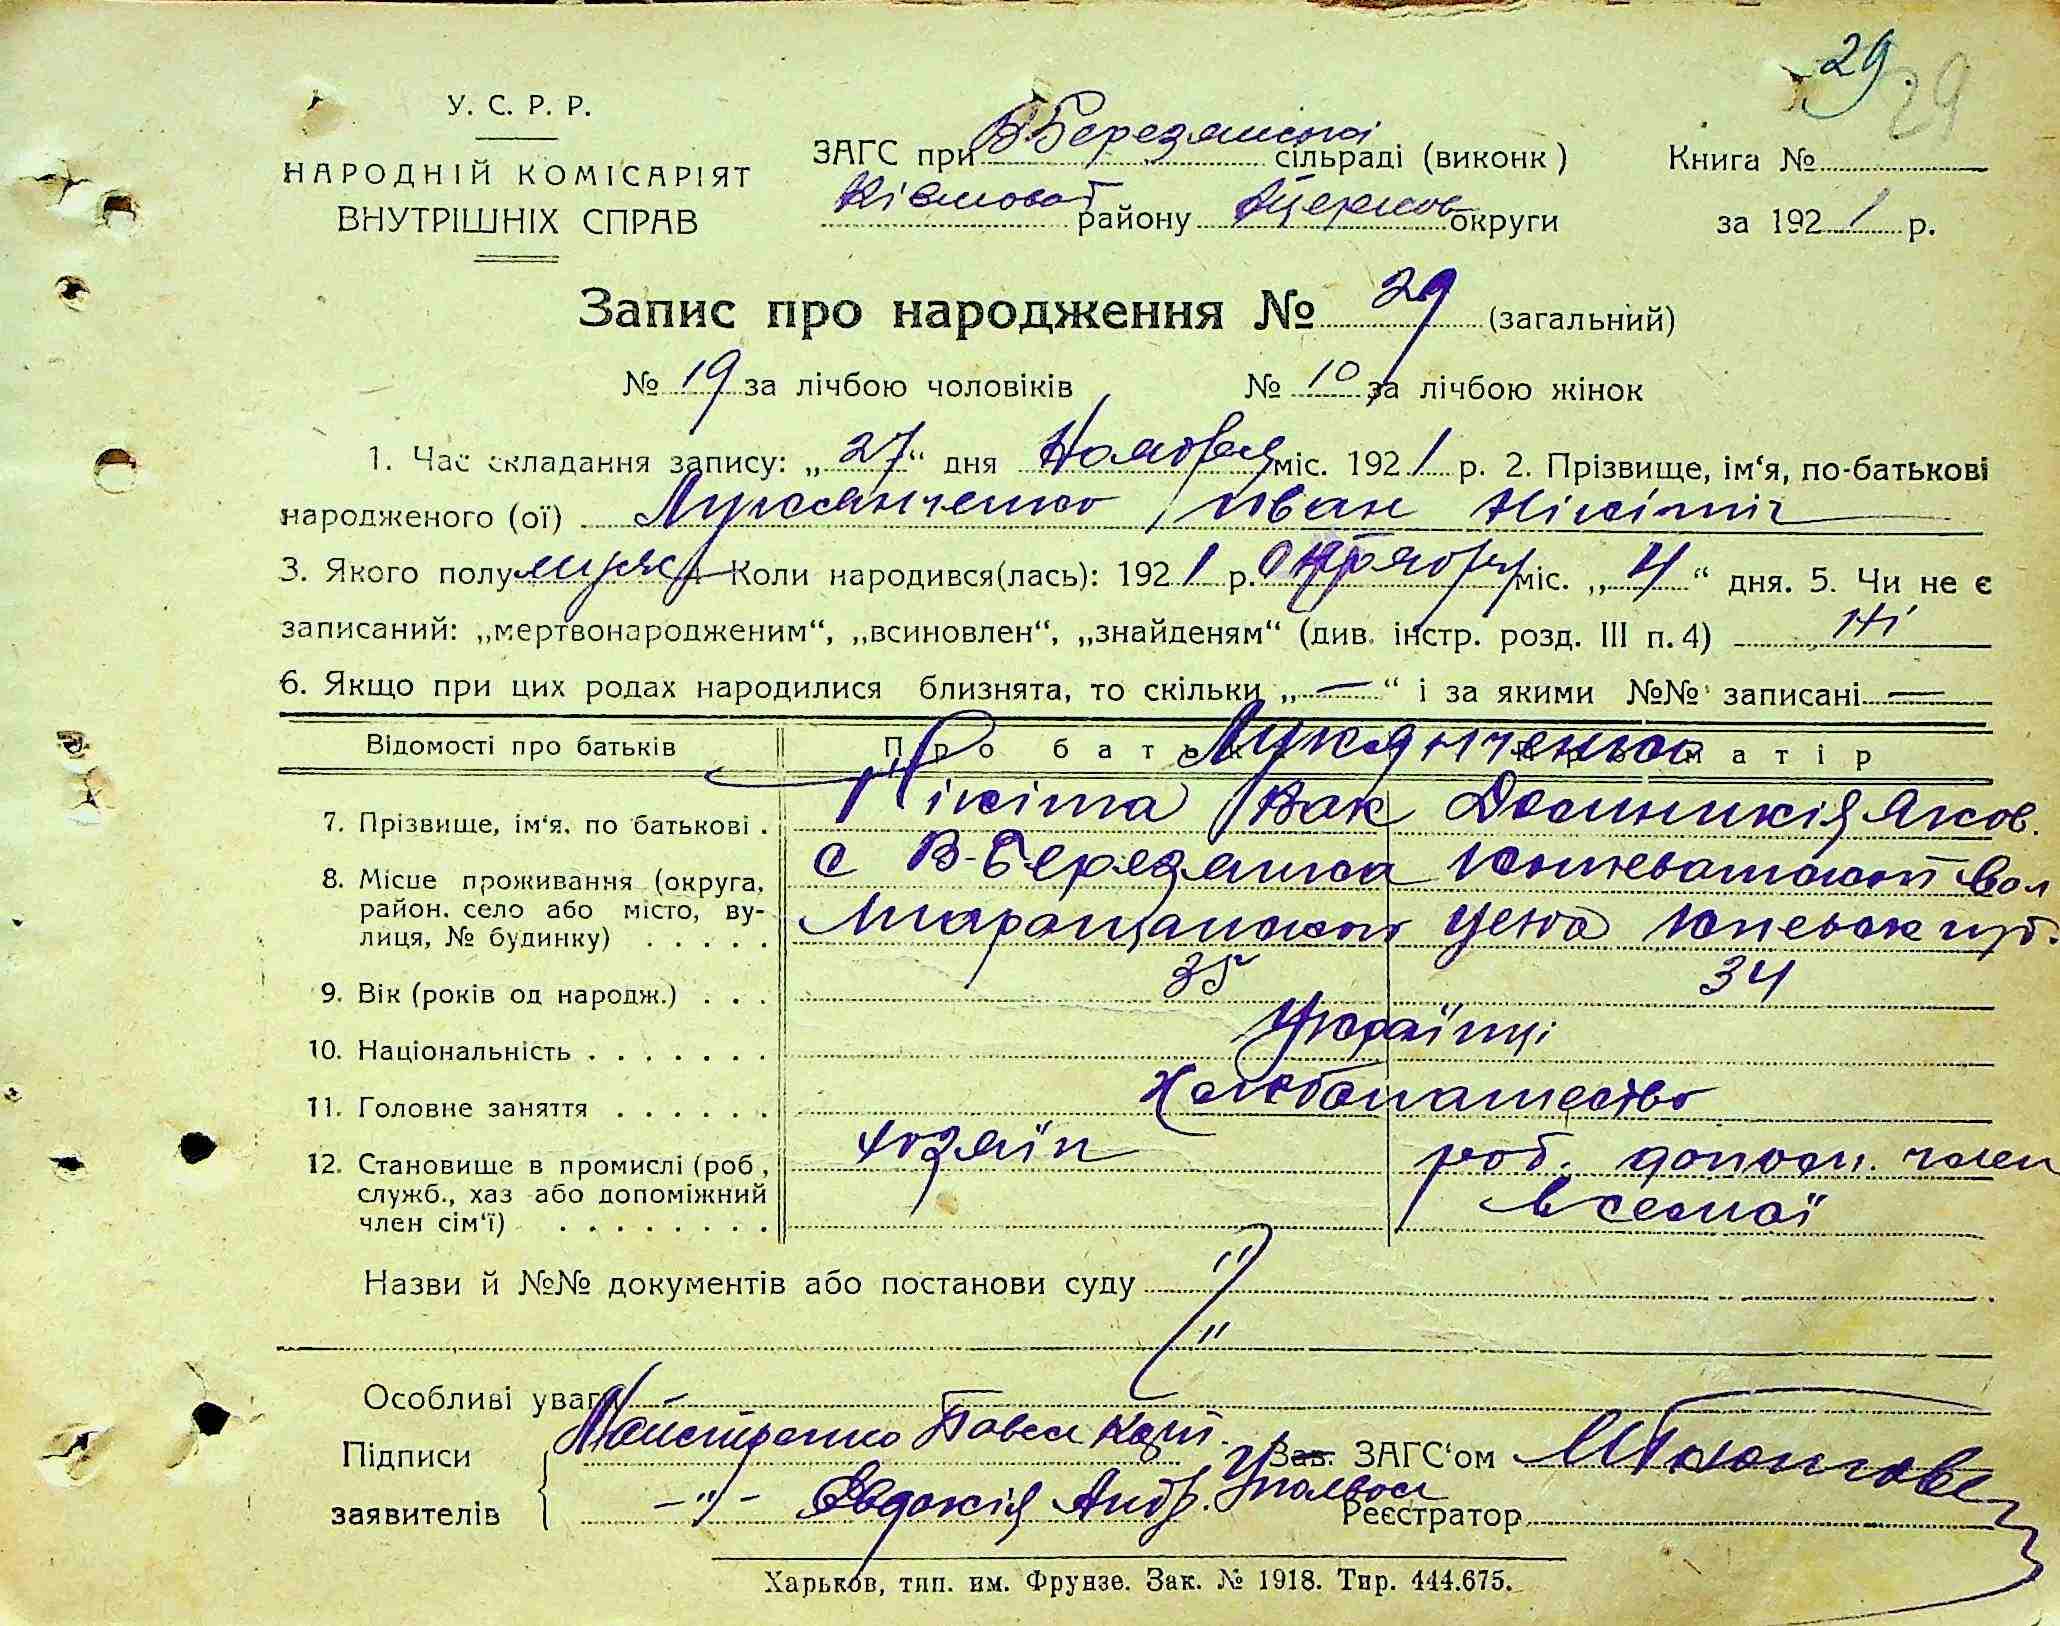 29. 29
У. С. Р. Р.
НАРОДНІЙ КОМІСАРІЯТ
ВНУТРІШНІХ СПРАВ
ЗАГС при В.Березянській сільраді (виконк)
району Бцерков округи
Книга №
за 1921 р.
Запис про народження № 29 (загальний)
№ 19 за лічбою чоловіків № 10 за лічбою жінок
1. Час складання запису: „27“ дня Ноября міс. 1921 р. 2. Прізвище, ім‘я, по-батькові
народженого (ої) Лукянченко Иван Нікітіч
3. Якого полу мужс 4 Коли народився(лась): 1921 р. Октября міс. „4“ дня. 5. Чи не є
записаний: „мертвонародженим“, „всиновлен“, „знайденям“ (див. інстр. розд. III п. 4) Ні
6. Якщо при цих родах народилися близнята, то скільки „—“ і за якими №№ записані —
Відомості про батьків Про батька Про матір
Лукянченко
7. Прізвище, ім‘я, по батькові . Нікіта Вак Домникія Яков.
8. Місце проживання (округа, район, село або місто, вулиця, № будинку) . . . . .
с В-Березянка Коневатской вол
Таращанского уезда Киевск губ.
9. Вік (років од народж.) . . . 35 34
10. Національність . . . . . . . Українці
11. Головне заняття . . . . . . Хлебопашество
12. Становище в промислі (роб, служб., хаз або допоміжний член сім‘ї) . . . . . . . .
хозяїн
роб. допом. член
в семї
Назви й №№ документів або постанови суду "
"
Особливі уваги
Підписи
заявителів
Майстренко Павел
-"- Євдокія Андр.
Зав. ЗАГС‘ом
Реєстратор
Харьков, тип. им. Фрунзе. Зак. № 1918. Тир. 444.675.